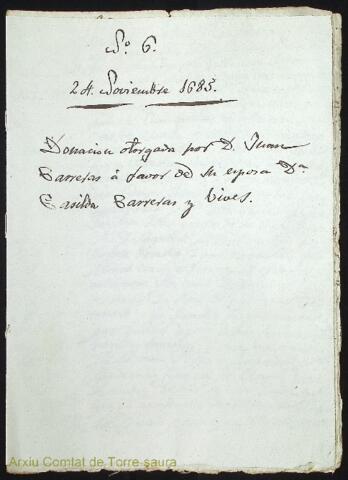 Nº 6.
24 Noviembre 1685.
Donacion otorgada por D. Juan
Carreras á favor de su esposa Dª
Casilda Carreras y Vives.
Arxiu Comtat de Torre saura